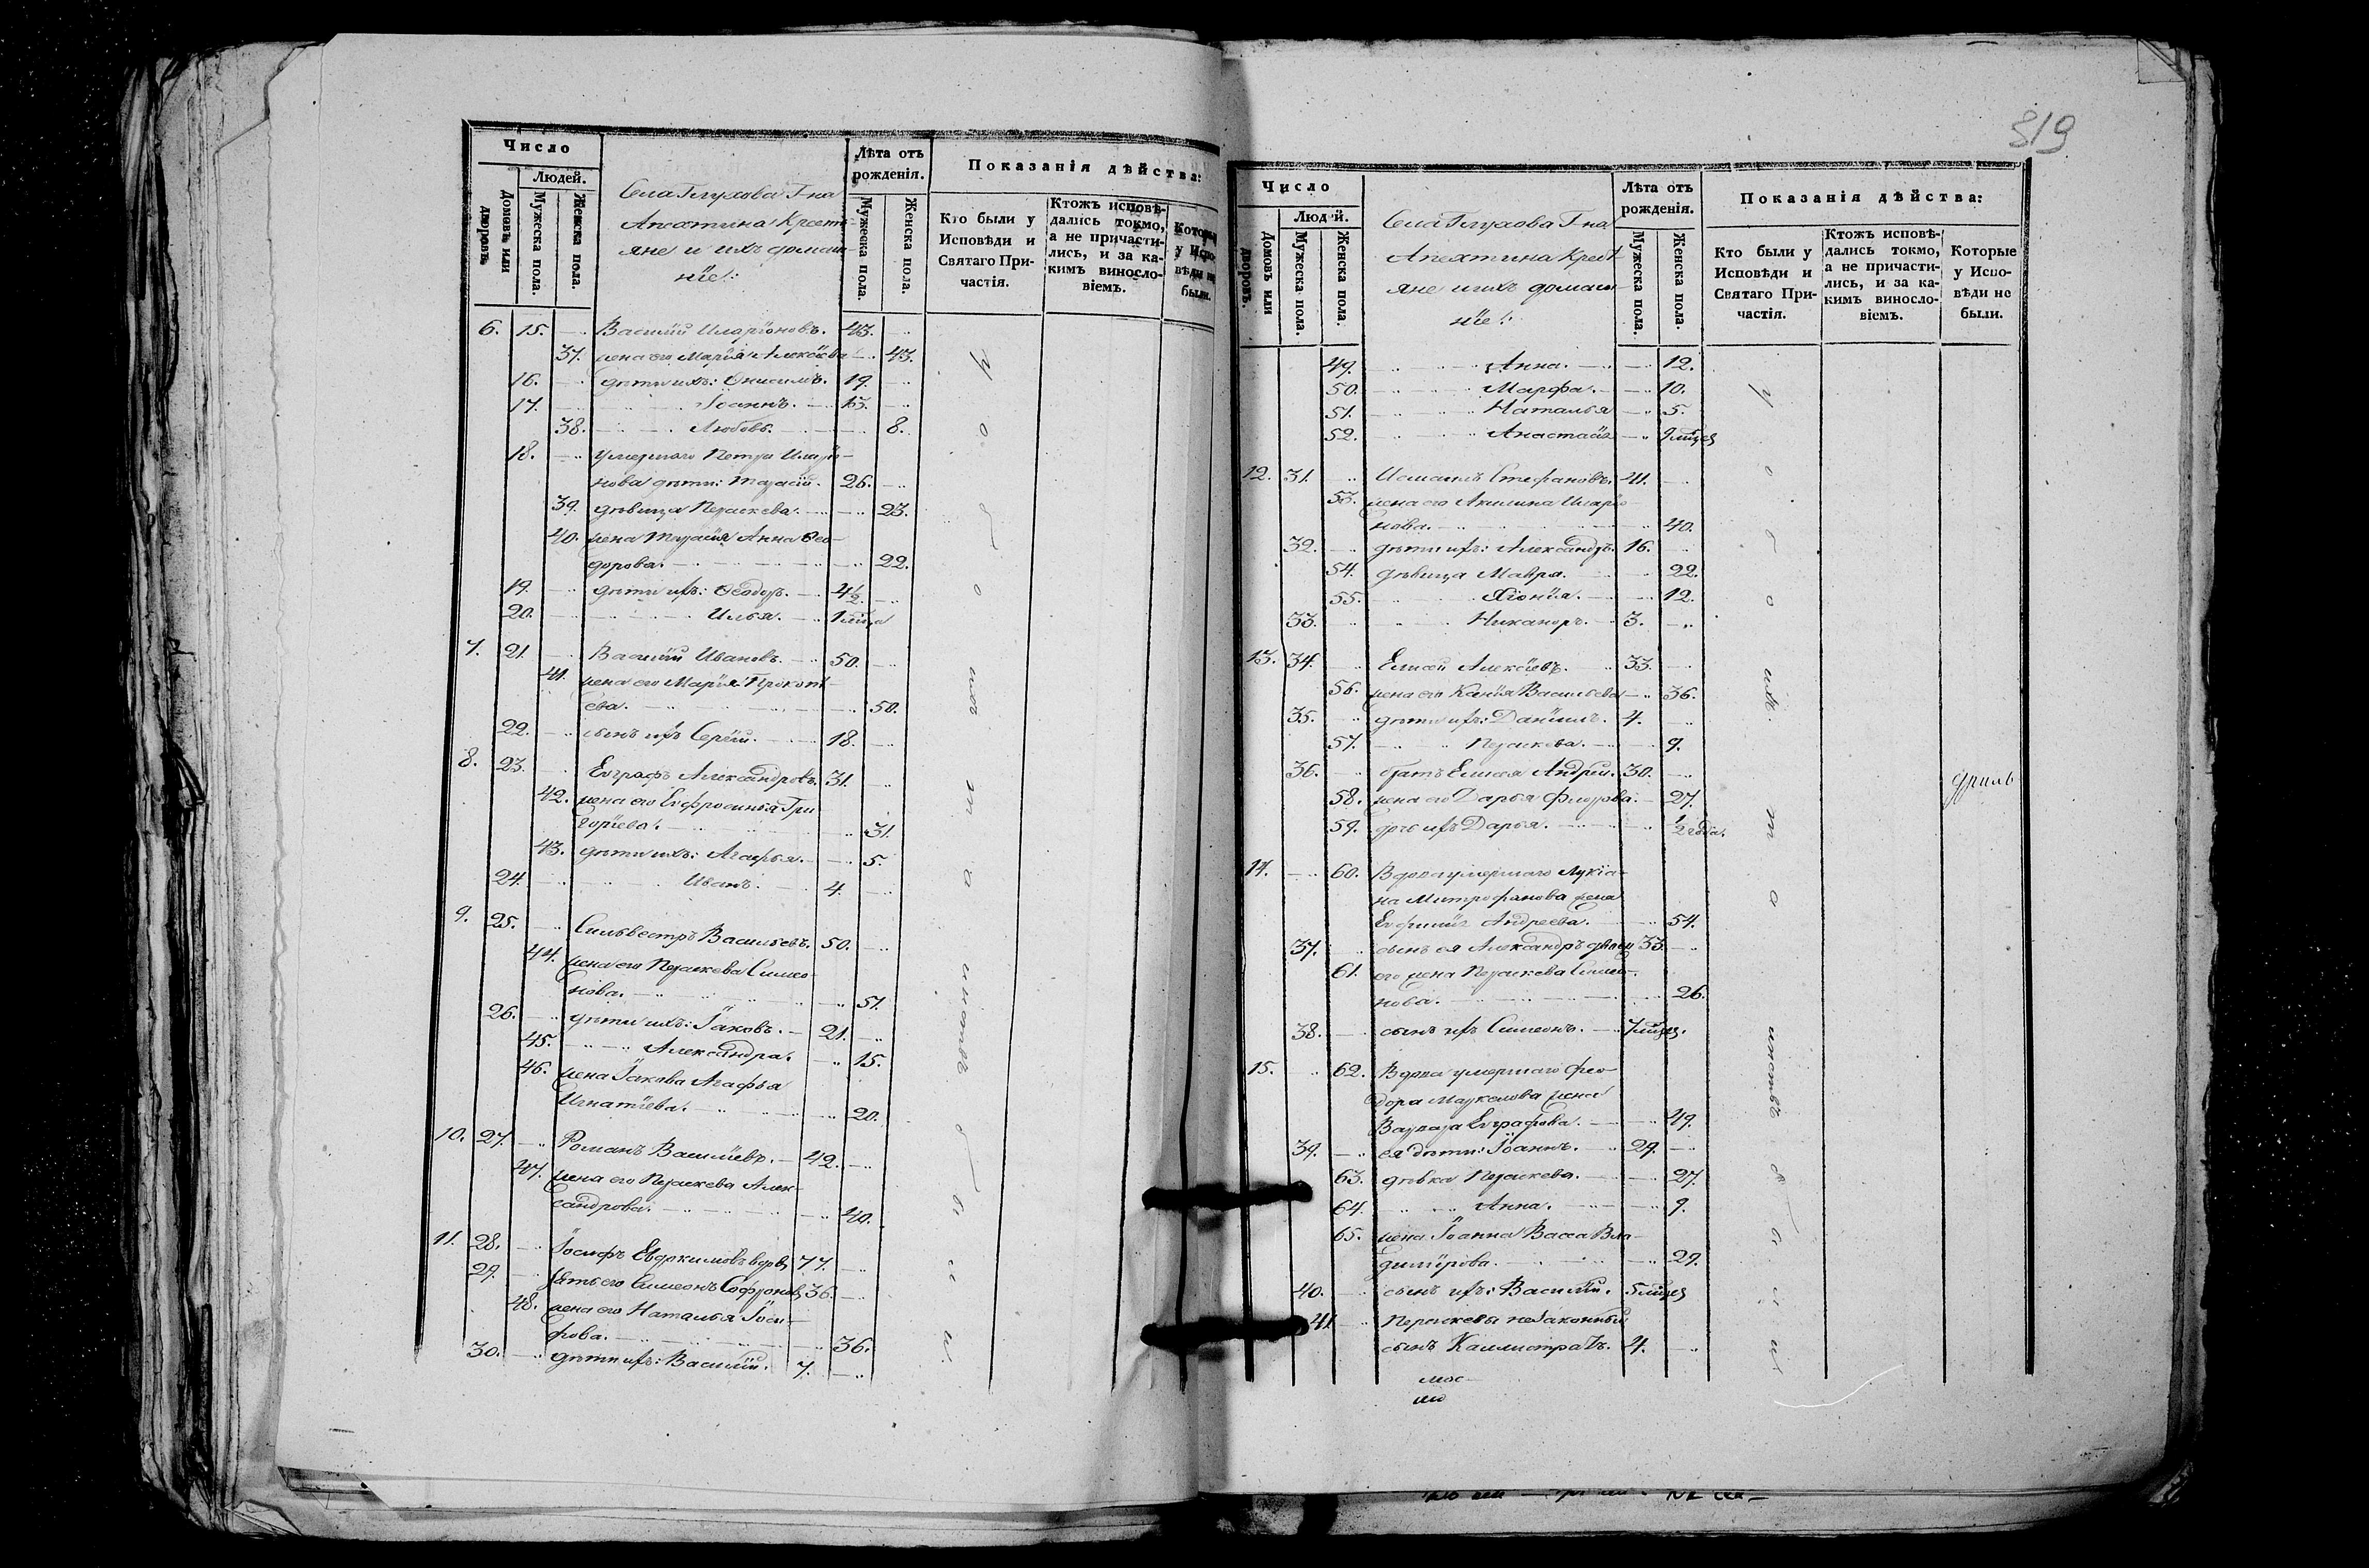 Число
Людей.
Домовъ или дворовъ.
Мужеска пола.
Женска пола.
Села Глухова Г-на
Апохтина Крестъ-
яне и ихъ домаш-
ніе:
Лѣта отъ рожденія.
Мужеска пола.
Женска пола.
Показанія дѣйства:
Кто были у Исповѣди и Святаго При-частія.
Ктожъ исповѣ-дались токмо, а не причасти-лись, и за ка-кимъ винosло-віемъ.
Которые у Испо-вѣди не были.
6. 15. Василій Иларіоновъ. 43.
37. жена его Марія Алексіева 43.
16. дѣти ихъ: Онисимъ. 19.
17. Іоаннъ. 13.
38. Любовь. 8.
18. умершаго Петра Иларіо-
нова дѣти: Тарасій. 26.
39. дѣвица Параскева. 23.
40. жена Тарасія Анна Ѳео-
дорова. 22.
19. дѣти ихъ: Ѳеодоръ. 4½
20. Илья. 1 мѣсяца
7. 21. Василій Ивановъ. 50.
41. жена его Марія Прокопі-
ева. 50.
22. сынъ ихъ Сергій. 18.
8. 23. Евграфъ Александровъ. 31.
42. жена его Евфросинья Гри
горіева. 31.
43. дѣти ихъ: Агафья. 5.
24. Иванъ. 4.
9. 25. Сильвестръ Васильевъ. 50.
44. жена его Параскева Симео-
нова. 51.
26. дѣти ихъ: Іаковъ. 21.
45. Александра. 15.
46. жена Іакова Агафья
Игнатіева. 20.
10. 27. Романъ Василіевъ. 42.
47. жена его Параскева Алек-
сандрова. 40.
11. 28. Іосифъ Евдокимовъ вдовъ 77.
29. зять его Симеонъ Софроновъ 36.
48. жена его Наталья Іоси-
фова. 36.
30. дѣти ихъ: Василій. 7.
у о б о ихъ т а инствъ б ы л и.
819
Число
Людей.
Домовъ или дворовъ.
Мужеска пола.
Женска пола.
Села Глухова Г-на
Апохтина Крестъ
яне и ихъ домаш-
ніе:
Лѣта отъ рожденія.
Мужеска пола.
Женска пола.
Показанія дѣйства:
Кто были у Исповѣди и Святаго При-частія.
Ктожъ исповѣ-дались токмо, а не причасти-лись, и за ка-кимъ винosло-віемъ.
Которые у Испо-вѣди не были.
49. Анна. 12.
50. Марфа. 10.
51. Наталья 5.
52. Анастасія 9 мѣсяц
12. 31. Исмаилъ Стефановъ. 41.
53. жена его Акилина Иларіо
нова. 40.
32. дѣти ихъ: Александръ. 16.
54. дѣвица Мавра. 22.
55. Хіонія. 12.
33. Никаноръ. 3.
13. 34. Елисей Алексіевъ. 33.
56. жена его Ксенія Васильева 36.
35. дѣти ихъ: Даніилъ. 4.
57. Параскева. 9.
36. братъ Елисея Андрей. 30.
58. жена его Дарья Флорова. 27.
59. дочь ихъ Дарья. ½ года.
14. 60. Вдова умершаго Лукіа-
на Митрофанова жена
Евфимія Андреева. 54.
37. сынъ ея Александръ 33.
61. его жена Параскева Симео-
нова. 26.
38. сынъ ихъ Симеонъ. 7 мѣсяц.
15. 62. Вдова умершаго Ѳео-
дора Маркелова жена
Варвара Евграфова. 49.
39. ея дѣти: Іоаннъ. 29.
63. дѣвка Параскева. 27.
64. Анна. 9.
65. жена Іоанна Васса Вла-
димірова. 29.
40. сынъ ихъ: Василій. 5 мѣсяц
41. Параскевы незаконный
сынъ Каллистратъ. 4.
у о б о ихъ т а инствъ б ы л и